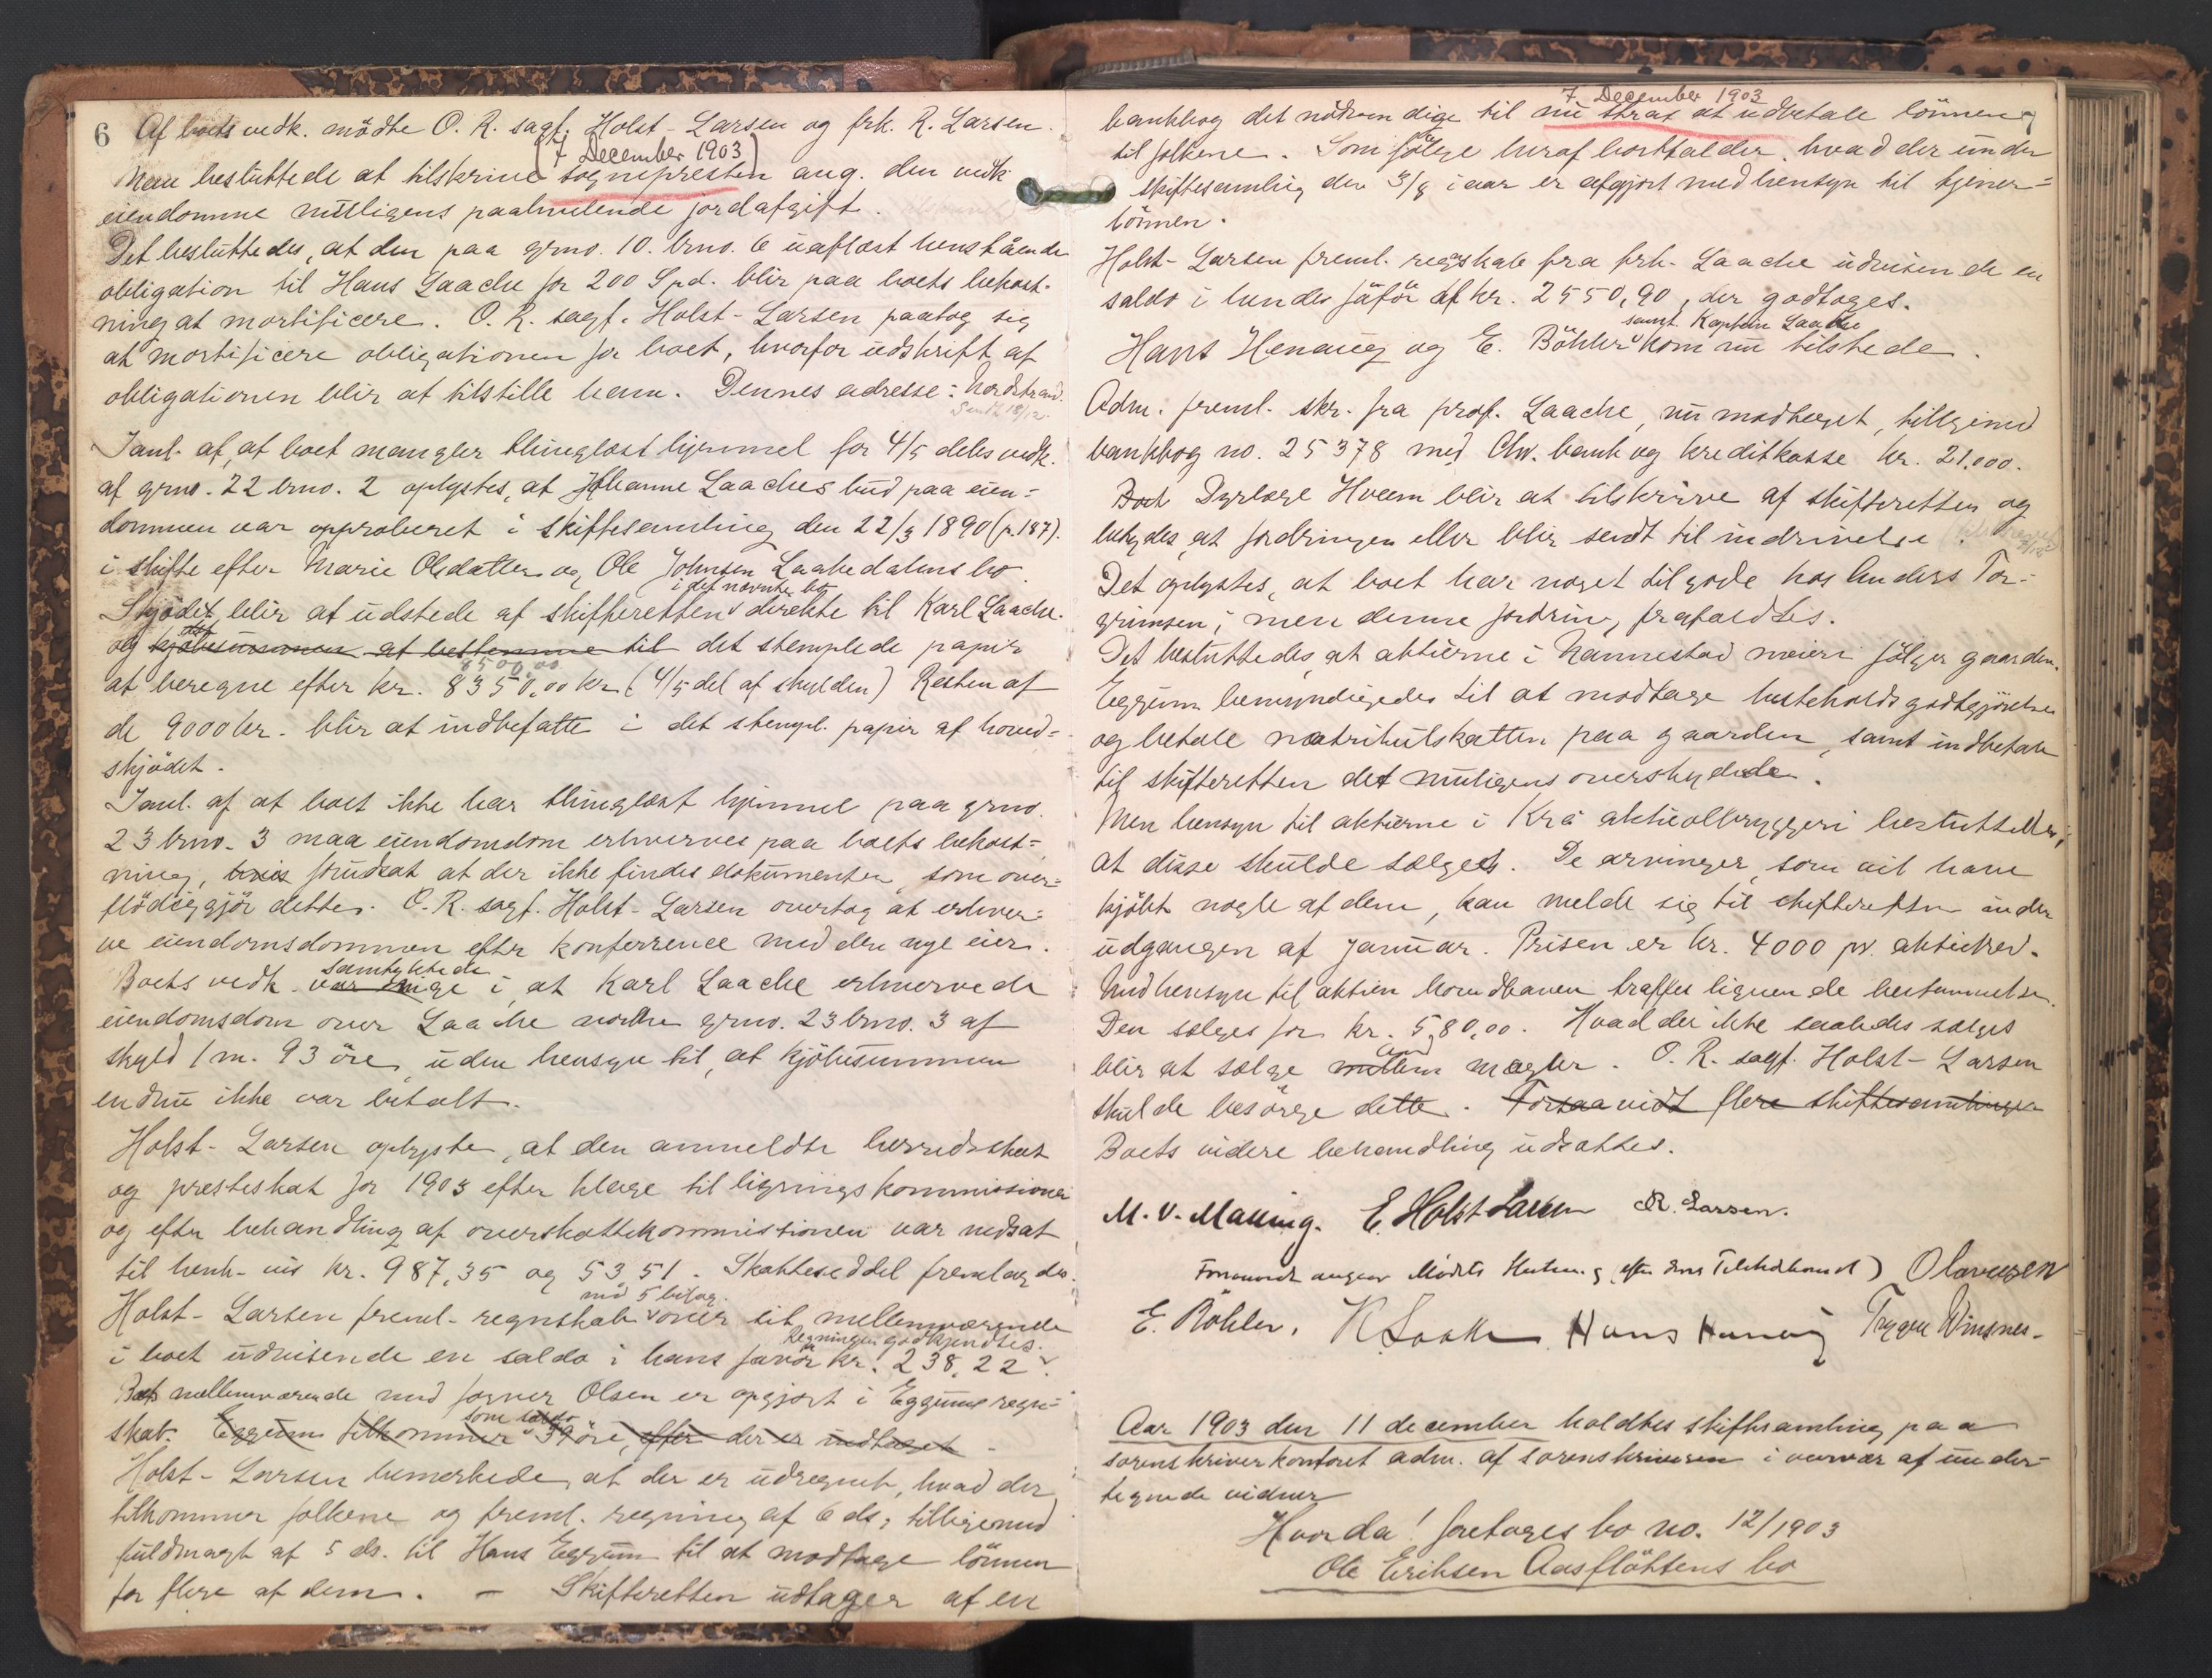 6 Af boets vedk. mödte O. R. sagf. Holst-Larsen og frk. R. Larsen.
(7 December 1903)
Man besluttede at tilskrive sognepresten ang. den vedk.
eiendomme muligens paahvilende jordafgift.
Det besluttedes, at den paa grno. 10. brno. 6 uaflæst henstående
obligation til Hans Laache for 200 Spd. blir paa boets bekost-
ning at mortificere. O. R. sagf. Holst-Larsen paatog sig
at mortificere obligationen for boet, hvorfor udskrift af
obligationen blir at tilstille ham. Dennes adresse: Nordstrand.
Sendt 18/12.
I anl. af, at boet mangler thinglæst hjemmel for 4/5 deles vedk.
af grno. 22 brno. 2 oplystes, at Johanne Laaches bud paa eien-
dommen var approberet i skiftesamling den 22/3 1890 (p. 187).
i skifte efter Marie Olsdatter og Ole Johnsen Laakedalens bo.
i det nævnte bo
Skjödet blir at udstede af skifteretten direkte til Karl Laache.
og kjöbesummen at bestemme til det stemplede papir
8500,00
at beregne efter kr. 8350,00 kr (4/5 del af skylden) Resten af
de 9000 kr. blir at indbefatte i det stempl. papir af hoved-
skjödet.
I anl. af at boet ikke har thinglæst hjemmel paa grno.
23 brno. 3 maa eiendomdom erhverves paa boets bekost-
ning, hvis forudsat at der ikke findes dokumenter, som over-
flödiggjör dette. O. R. sagf. Holst-Larsen overtog at erhver-
ve eiendomsdommen efter konferrence med den nye eier.
samtykkede
Boets vedk. var enige i, at Karl Laache erhvervede
eiendomsdom over Laache nordre grno. 23 brno. 3 af
skyld 1 m. 93 öre, uden hensyn til, at kjöbesummen
endnu ikke var betalt.
Holst-Larsen oplyste, at den anmeldte herredsskat
og presteskat for 1903 efter klage til ligningskommissionen
og efter behandling af overskattekommissionen var nedsat
til henh-vis kr. 987,35 og 53,51. Skatteseddel fremlagdes.
med 5 bilag.
Holst-Larsen freml. regnskab over sit mellemværende
Regningen godkjendtes.
i boet udvisende en saldo i hans favör kr. 238,22.
Boets mellemværende med forver Olsen er opgjort i Eggums regn-
som saldo
skab. Eggum tilkommer 39 öre, efter der er indtaget.
Holst-Larsen bemerkede, at der er udregnet, hvad der
tilkommer folkene og freml. regning af 6 ds. tilligemed
fuldmagt af 5 ds. til Hans Eggum til at modtage lönnen
for flere af dem. – Skifteretten udtager af en
7 December 1903
bankbog det nödvendige til nu strax at udbetale lönnen
til folkene. Som fölge heraf bortfalder, hvad der under
skiftesamling den 3/9 iaar er afgjort med hensyn til tjener-
lönnen.
Holst-Larsen freml. regnskab fra frk. Laache udvisende en
saldo i hendes favör af kr. 2550,90, der godtoges.
samt Kaptein Laache
Hans Henaug og E. Böhler kom nu tilstede.
Adm. freml. skr. fra prof. Laache, nu modtaget, tilligemed
bankbog no. 25378 med Chr. bank og kreditkasse kr. 21.000.
Dyrlæge Hveem blir at tilskrive af skifteretten og
betydes, at fordringen eller blir sendt til indrivelse.
Det oplystes, at boet har noget tilgode hos Anders Tor-
grimsen; men denne fordring frafaldtes.
Det besluttedes, at aktierne i Nannestad meieri fölger gaarden.
Eggum bemyndigedes til at modtage hesteholdsgodtgjörelse
og betale matrikulskatten paa gaarden, samt indbetale
til skifteretten det muligens overskydende.
Men hensyn til aktierne i Kra aktieölbryggeri besluttedes,
at disse skulde sælges. De arvinger, som vil have
kjöbt nogle af dem, kan melde sig til skifteretten inden
udgangen af januar. Prisen er kr. 4000 pr. aktiebrev.
Med hensyn til aktien Hovedbanen træffes lignende bestemmelse.
Den sælges for kr. 580,00. Hvad der ikke saaledes sælges
ved
blir at sælge mellem mægler. O. R. sagf. Holst-Larsen
skulde besörge dette. Forsaavidt flere skiftesamlinger
Boets videre behandling udsattes.
M. V. Malling. E. Holst Larsen R. Larsen.
Olavesen
E. Böhler. K Laache Hans Henaug Trygve Winsnes.
Aar 1903 den 11 december holdtes skiftesamling paa
sorenskriverkontoret adm. af sorenskriveren i overvær af under-
tegnede vidner
Hvorda! foretoges bo no. 12/1903
Ole Eriksen Aasflöttens bo